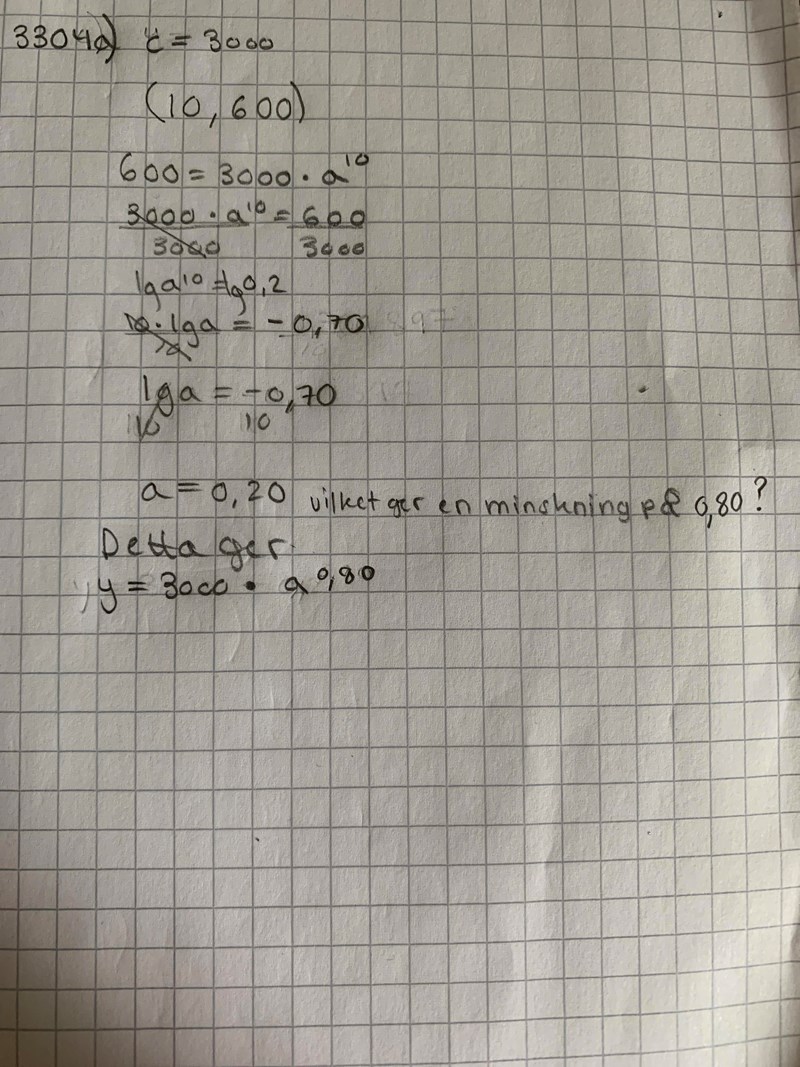 3304a) C = 3000
(10, 600)
600 = 3000 · a^10
3000 · a^10 = 600
3000 3000
lg a^10 = lg 0,2
10 · lg a = -0,70
10
lg a = -0,70
10 10
a = 0,20 vilket ger en minskning på 0,80?
Detta ger
y = 3000 · a^0,80